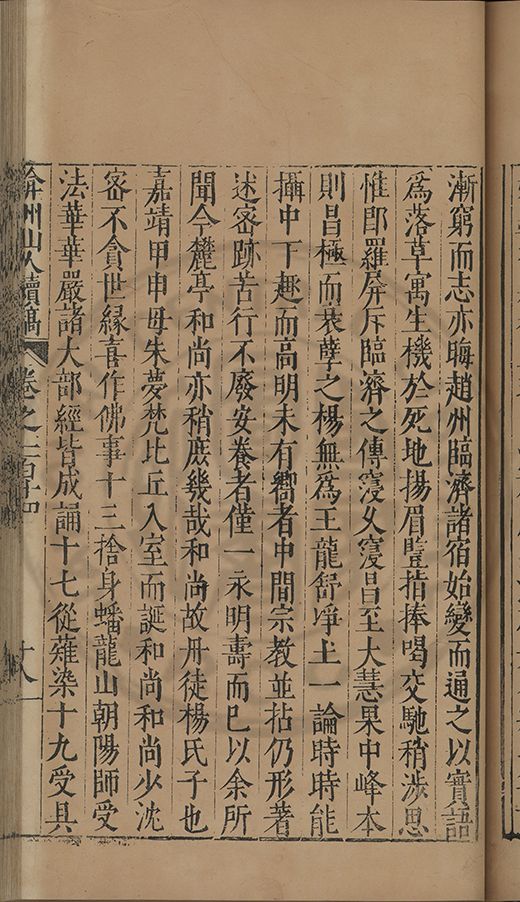 漸窮而志亦晦趙州臨濟諸宿始變而通之以實語
爲落草寓生機於死地揚眉豎指捧喝交馳稍涉思
惟卽羅屏斥臨濟之傳寖乆寖昌至大慧杲中峰本
則昌極而衰孽之楊無爲王龍舒淨土一論時時能
攝中下趣而高明未有嚮者中間宗教並拈仍形著
述密跡苦行不廢安養者僅一永明壽而已以余所
聞今麓亭和尚亦稍庶幾哉和尚故丹徒楊氏子也
嘉靖甲申母朱夢梵比丘入室而誕和尚和尚少沈
密不貪世緣喜作佛事十三捨身蟠龍山朝陽師受
法華華嚴諸大部經皆成誦十七從薙染十九受具
弇州山人續稿 卷之一百十四 十八